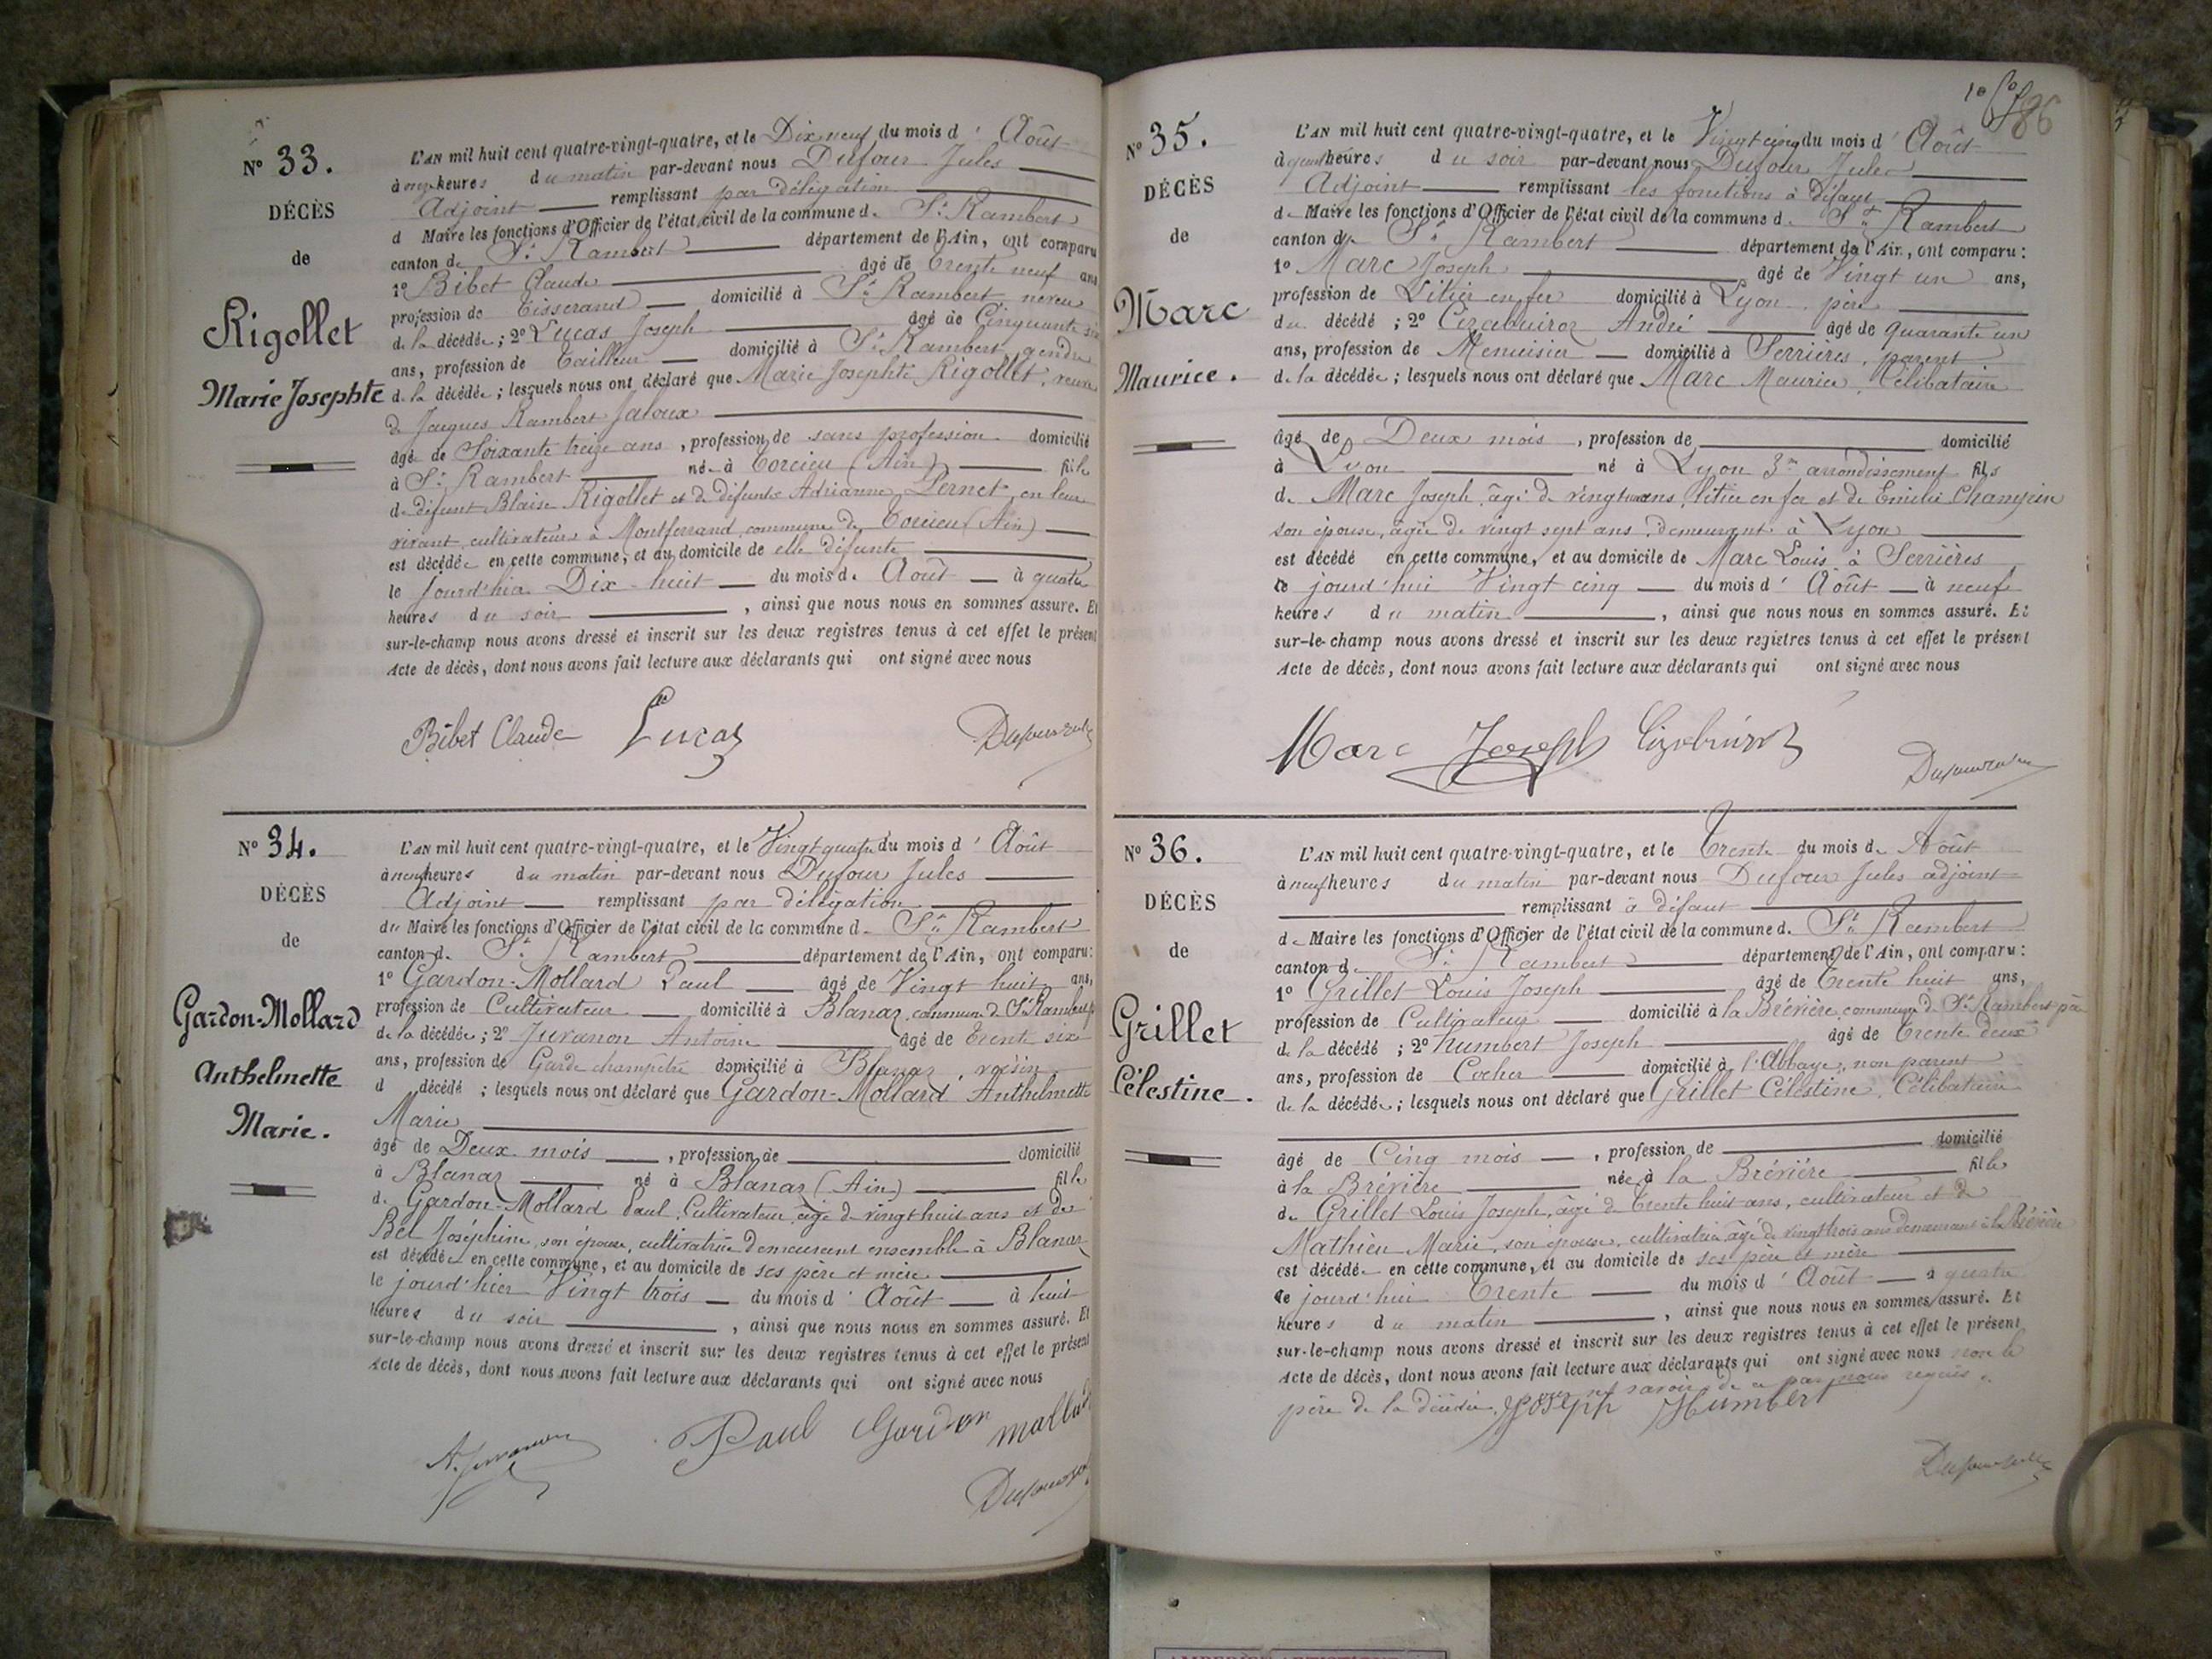 N° 33.
DÉCÈS
de
Rigollet
Marie Josephte
L'AN mil huit cent quatre-vingt-quatre, et le Dix neuf du mois d' Août
à onze heures du matin par-devant nous Dufour Jules
Adjoint remplissant par délégation
d Maire les fonctions d'Officier de l'état civil de la commune de St Rambert
canton de St Rambert département de l'Ain, ont comparu
1° Bibet Claude âgé de Trente neuf ans
profession de Tisserand domicilié à St Rambert, neveu
de la décédée ; 2° Lucas Joseph âgé de Cinquante six
ans, profession de Tailleur domicilié à St Rambert, gendre
de la décédée ; lesquels nous ont déclaré que Marie Josephte Rigollet, veuve
de Jacques Rambert Jaloux
âgé de Soixante treize ans, profession de sans profession domicilié
à St Rambert né à Torcieu (Ain) fille
de défunt Blaise Rigollet et de défunte Adrianne Pernet, en leur
vivant cultivateurs à Montferrand commune de Torcieu (Ain)
est décédée en cette commune, et au domicile de elle défunte
le jourd'hier Dix-huit du mois d. Août à quatre
heures du soir, ainsi que nous nous en sommes assuré. Et
sur-le-champ nous avons dressé et inscrit sur les deux registres tenus à cet effet le présent
Acte de décès, dont nous avons fait lecture aux déclarants qui ont signé avec nous
Bibet Claude Lucas Dufour Jules
N° 34.
DÉCÈS
de
Gardon-Mollard
Anthelmette
Marie.
L'AN mil huit cent quatre-vingt-quatre, et le Vingt quatre du mois d' Août
à neuf heures du matin par-devant nous Dufour Jules
Adjoint remplissant par délégation
du Maire les fonctions d'Officier de l'état civil de la commune de St Rambert
canton de St Rambert département de l'Ain, ont comparu :
1° Gardon-Mollard Paul âgé de Vingt huit ans,
profession de Cultivateur domicilié à Blanaz, commune de St Rambert, père
de la décédée ; 2° Juvanon Antoine âgé de Trente six
ans, profession de Garde champêtre domicilié à Blanaz, voisin
d décédé ; lesquels nous ont déclaré que Gardon-Mollard Anthelmette
Marie
âgé de Deux mois, profession de domicilié
à Blanaz né à Blanaz (Ain) fille
de Gardon-Mollard Paul, Cultivateur, âgé de vingt huit ans et de
Bel Joséphine, son épouse, cultivatrice demeurant ensemble à Blanaz
est décédée en cette commune, et au domicile de ses père et mère
le jourd'hier Vingt trois du mois d' Août à huit
heures du soir, ainsi que nous nous en sommes assuré. Et
sur-le-champ nous avons dressé et inscrit sur les deux registres tenus à cet effet le présent
Acte de décès, dont nous avons fait lecture aux déclarants qui ont signé avec nous
A. Juvanon Paul Gardon mollard
Dufour
86
N° 35.
DÉCÈS
de
Marc
Maurice.
L'AN mil huit cent quatre-vingt-quatre, et le Vingt cinq du mois d' Août
à heures du soir par-devant nous Dufour Jules
Adjoint remplissant les fonctions à défaut
de Maire les fonctions d'Officier de l'état civil de la commune de St Rambert
canton de St Rambert département de l'Ain, ont comparu :
1° Marc Joseph âgé de Vingt un ans,
profession de Litier en fer domicilié à Lyon, père
du décédé ; 2° André âgé de quarante un
ans, profession de Menuisier domicilié à Serrières, parent
de la décédée ; lesquels nous ont déclaré que Marc Maurice, Célibataire
âgé de Deux mois, profession de domicilié
à Lyon né à Lyon 3me arrondissement fils
de Marc Joseph, âgé de vingt un ans, litier en fer et de Emilie Champin
son épouse, âgée de vingt sept ans, demeurant à Lyon
est décédé en cette commune, et au domicile de Marc Louis à Serrières
le jourd'hui Vingt cinq du mois d' Août à neuf
heures du matin, ainsi que nous nous en sommes assuré. Et
sur-le-champ nous avons dressé et inscrit sur les deux registres tenus à cet effet le présent
Acte de décès, dont nous avons fait lecture aux déclarants qui ont signé avec nous
Marc Joseph Dufour Jules
N° 36.
DÉCÈS
de
Grillet
Célestine.
L'AN mil huit cent quatre-vingt-quatre, et le Trente du mois de Août
à neuf heures du matin par-devant nous Dufour Jules adjoint
remplissant à défaut
de Maire les fonctions d'Officier de l'état civil de la commune de St Rambert
canton de St Rambert département de l'Ain, ont comparu :
1° Grillet Louis Joseph âgé de Trente huit ans,
profession de Cultivateur domicilié à la Brévière commune de St Rambert père
de la décédé ; 2° Humbert Joseph âgé de Trente deux
ans, profession de Cocher domicilié à l'Abbaye, non parent
de la décédée ; lesquels nous ont déclaré que Grillet Célestine, Célibataire
âgé de Cinq mois, profession de domicilié
à la Brévière née à la Brévière fille
de Grillet Louis Joseph, âgé de Trente huit ans, cultivateur et de
Mathieu Marie, son épouse, cultivatrice âgée de vingt trois ans demeurant à la Brévière
est décédée en cette commune, et au domicile de ses père et mère
le jourd'hui Trente du mois d' Août à quatre
heures du matin, ainsi que nous nous en sommes assuré. Et
sur-le-champ nous avons dressé et inscrit sur les deux registres tenus à cet effet le présent
Acte de décès, dont nous avons fait lecture aux déclarants qui ont signé avec nous non le
père de la décédée pour ne savoir de ce par nous requis.
Joseph Humbert
Dufour Jules